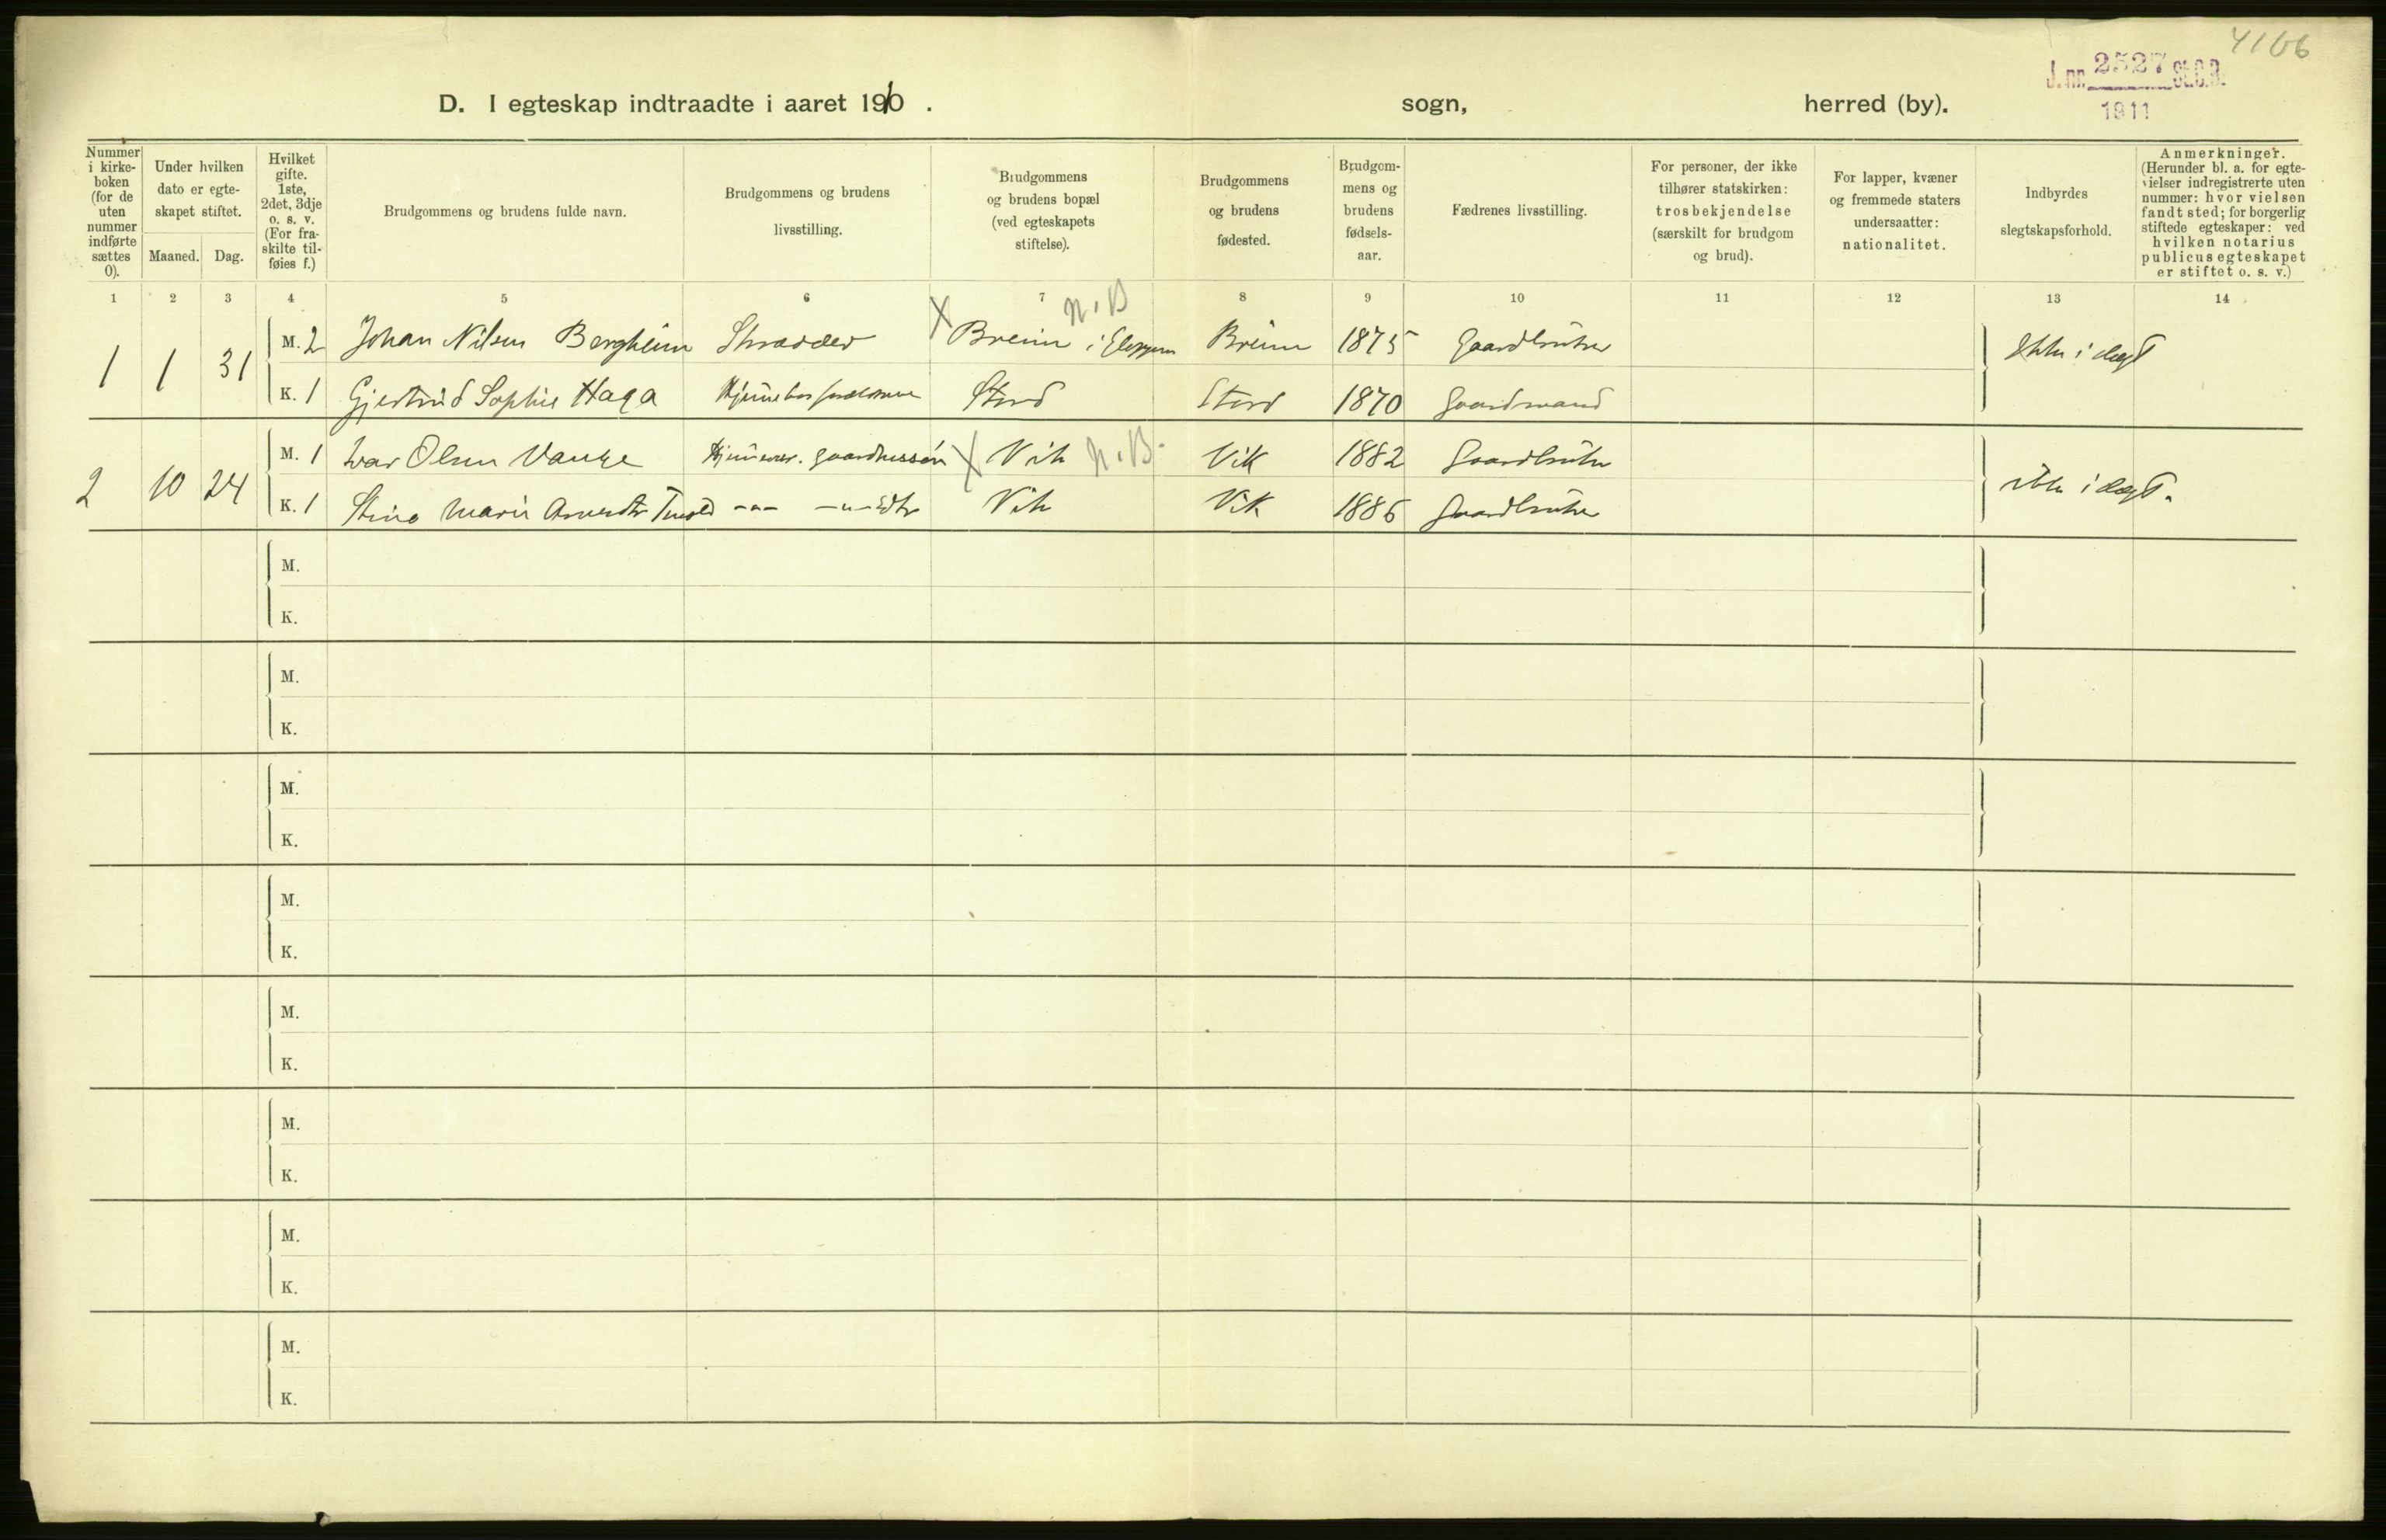 4106
J. nr. 2527 St.C.B.
1911
D. I egteskap indtraadte i aaret 1910 . sogn, herred (by).
Nummer i kirke-boken (for de uten nummer indførte sættes 0).
Under hvilken dato er egte-skapet stiftet.
Maaned. Dag.
Hvilket gifte. 1ste, 2det, 3dje o. s. v. (For fra-skilte til-føies f.)
Brudgommens og brudens fulde navn.
Brudgommens og brudens livsstilling.
Brudgommens og brudens bopæl (ved egteskapets stiftelse).
Brudgommens og brudens fødested.
Brudgom-mens og brudens fødsels-aar.
Fædrenes livsstilling.
For personer, der ikke tilhører statskirken: trosbekjendelse (særskilt for brudgom og brud).
For lapper, kvæner og fremmede staters undersaatter: nationalitet.
Indbyrdes slegtskapsforhold.
Anmerkninger. (Herunder bl. a. for egte-vielser indregistrerte uten nummer: hvor vielsen fandt sted; for borgerlig stiftede egteskaper: ved hvilken notarius publicus egteskapet er stiftet o. s. v.)
1 2 3 4 5 6 7 8 9 10 11 12 13 14
N.B
1 1 31 M. 2 Johan Nilsen Bergheim Skrædder X Breim i Gloppen Breim 1875 Gaardbruker Ikke i slegt
K. 1 Gjertrud Sophie Haga Stord Stord 1870 Gaardmand
2 10 24 M. 1 Ivar Olsen Vange X Vik N.B. Vik 1882 Gaardbruker ikke i slegt.
K. 1 Stina Marie Vik Vik 1886 Gaardbruker
M.
K.
M.
K.
M.
K.
M.
K.
M.
K.
M.
K.
M.
K.
M.
K.